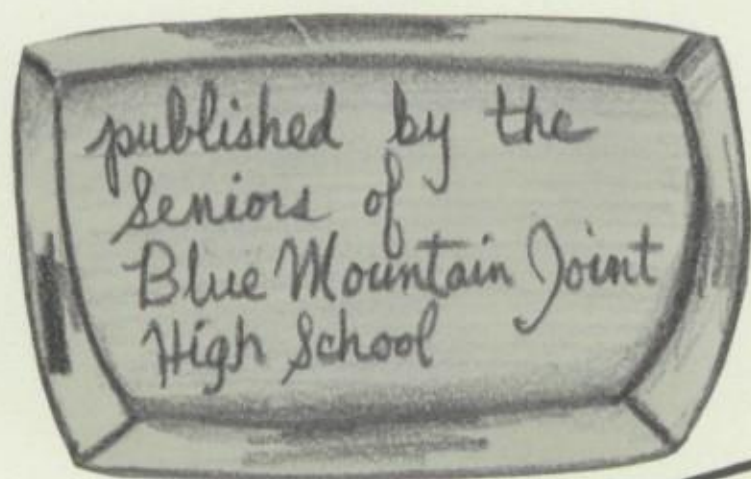 published by the
Seniors of
Blue Mountain Joint
High School